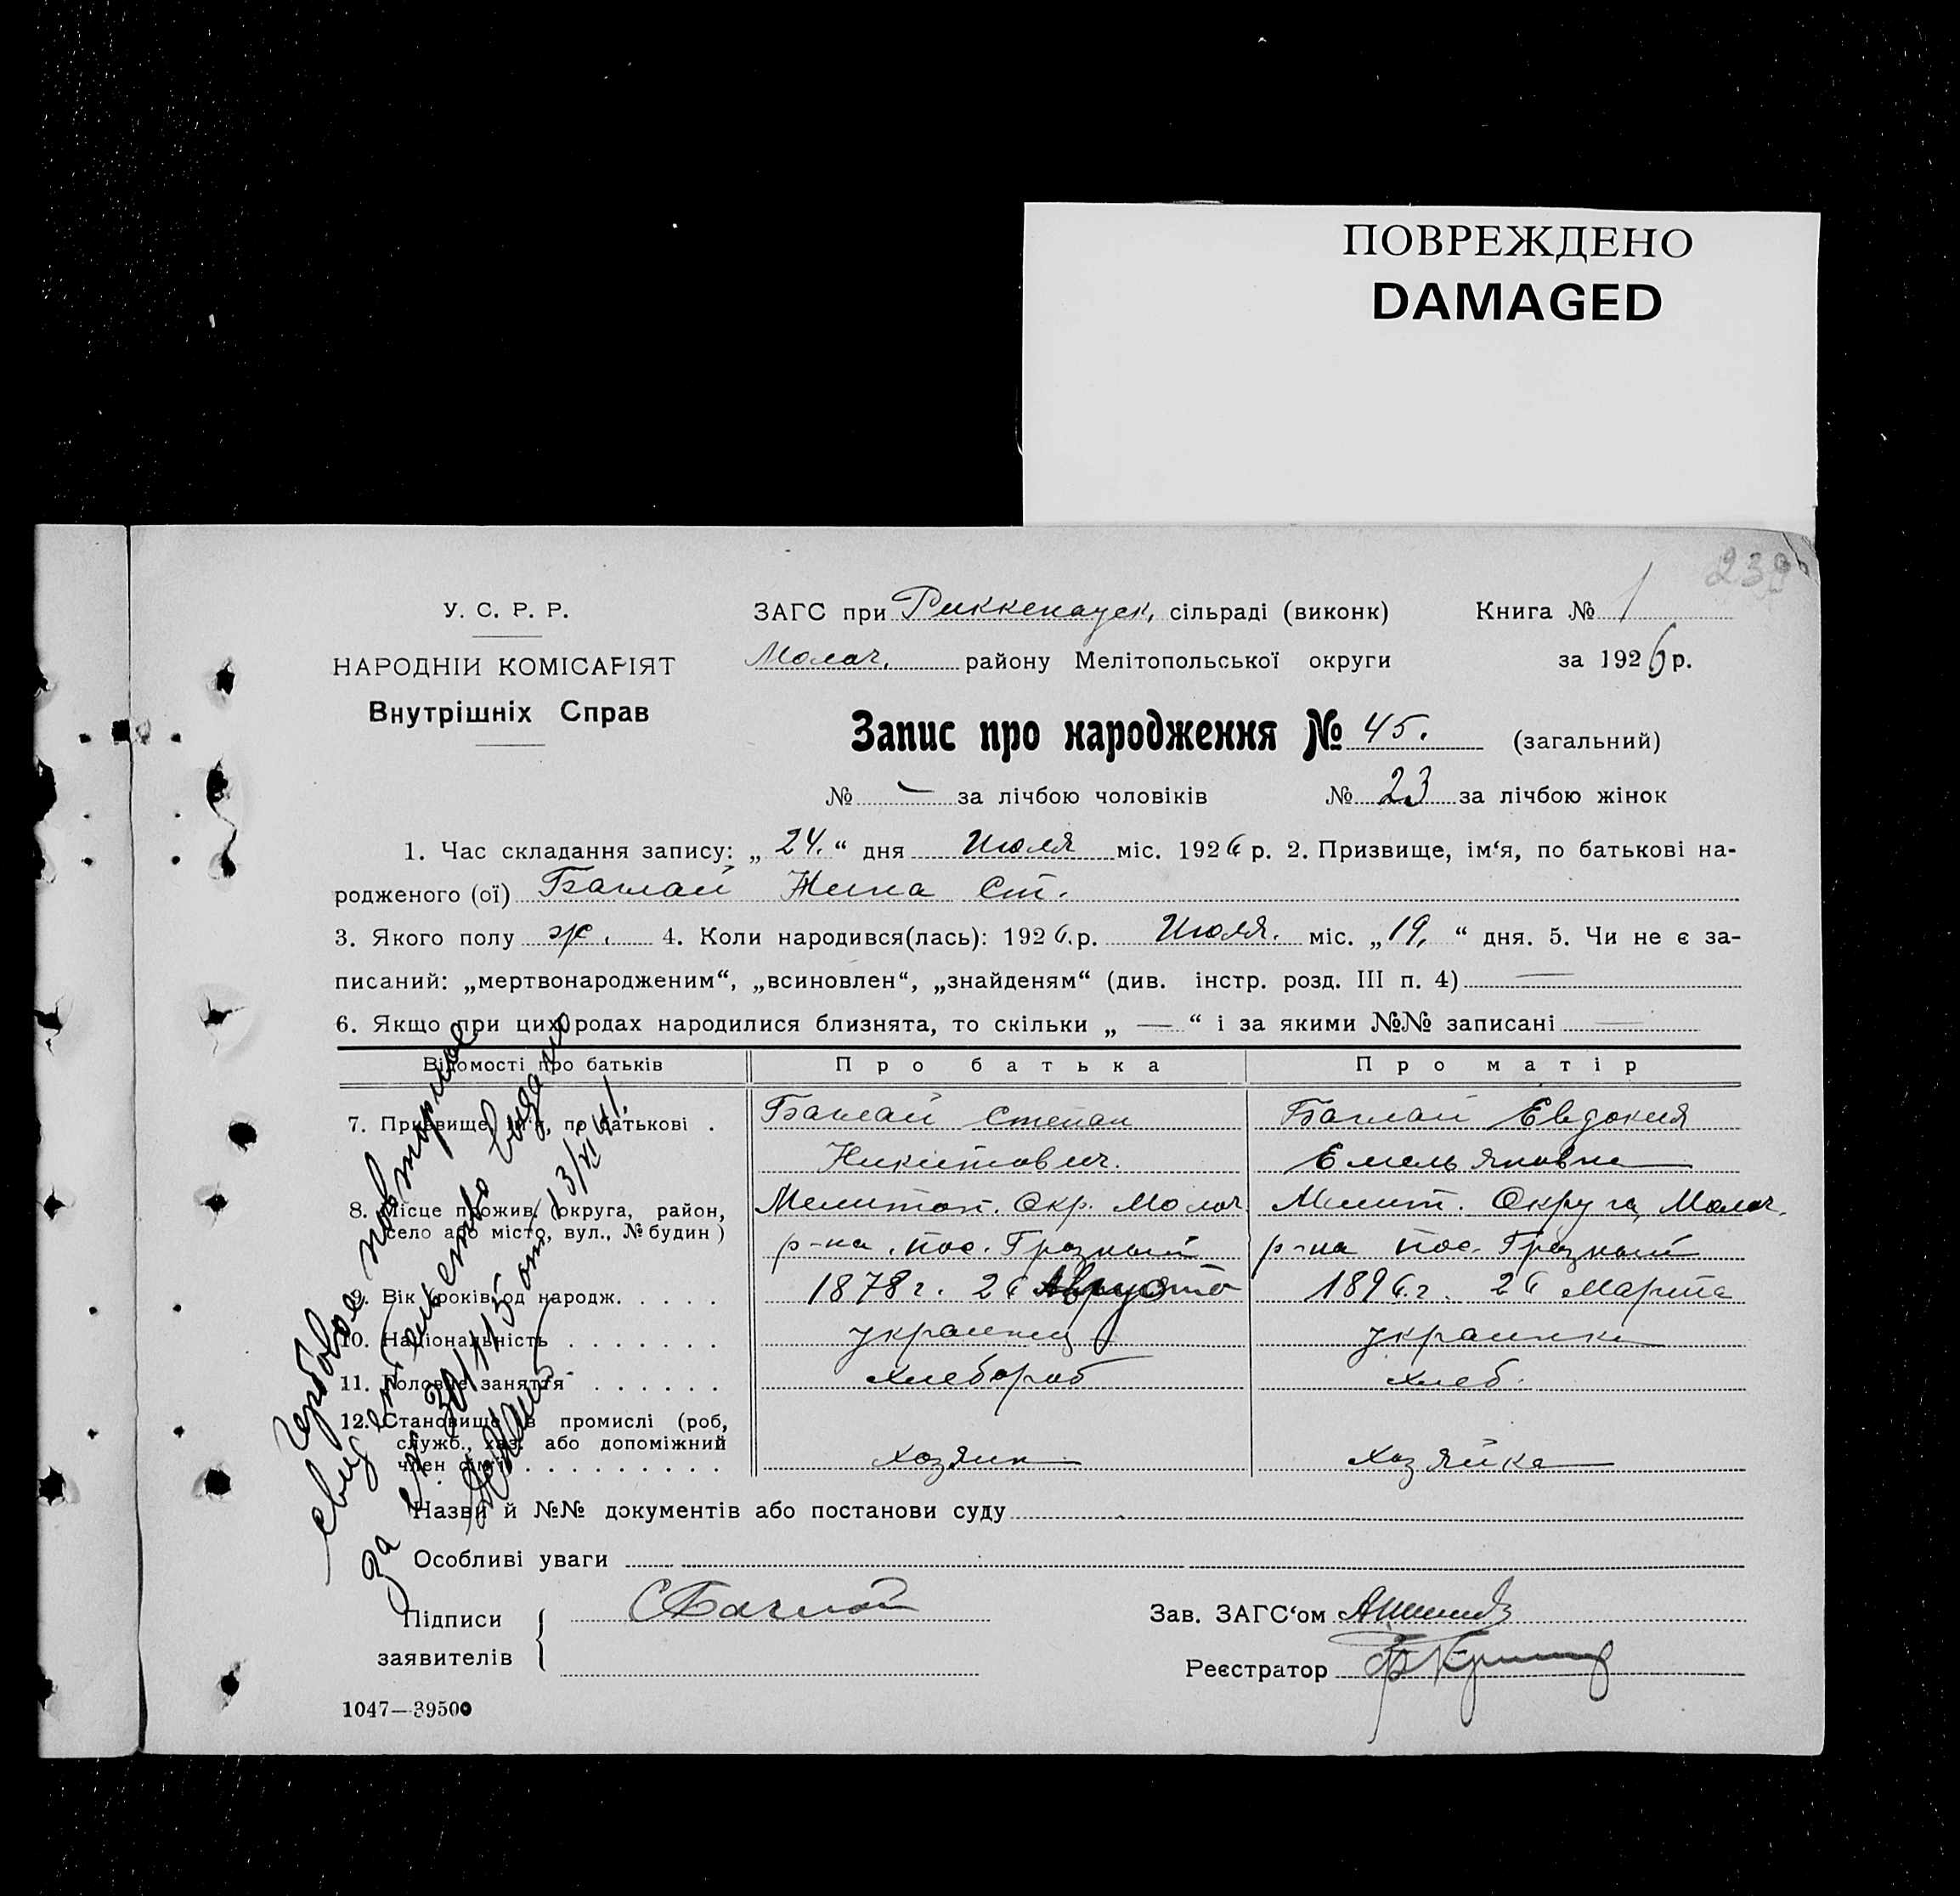 ПОВРЕЖДЕНО
DAMAGED
239
У. С. Р. Р.
НАРОДНІЙ КОМІСАРІЯТ
Внутрішніх Справ
ЗАГС при Риккенауск, сільраді (виконк) Книга № 1
Молоч. району Мелітопольської округи за 1926 р.
Запис про народження № 45. (загальний)
№ — за лічбою чоловіків № 23 за лічбою жінок
1. Час складання запису: „24.“ дня Июля міс. 1926 р. 2. Призвище, ім‘я, по батькові на-
родженого (ої) Баглай Нина Ст.
3. Якого полу ж. 4. Коли народився(лась): 1926.р. Июля. міс. „19,“ дня. 5. Чи не є за-
писаний: „мертвонародженим“, „всиновлен“, „знайденям“ (див. інстр. розд. III п. 4) —
6. Якщо при цих родах народилися близнята, то скільки „ — “ і за якими №№ записані —
Відомості про батьків Про батька Про матір
7. Призвище, ім‘я, по батькові . Баглай Степан Баглай Евдокия
Никитович. Емельяновна
8. Місце прожив. (округа, район, Мелитоп. Окр. Молоч. Мелит. Округа, Молоч.
село або місто, вул., № будин) р-на, пос. Грозный р-на пос. Грозный
9. Вік (років од народж. . . . . . 1878 г. 26 Августа 1896.г. 26 Марта
10. Національність . . . . . . . украинец украинка
11. Головне заняття . . . . . . хлебороб хлеб.
12. Становище в промислі (роб,
служб., хаз. або допоміжний
член сім‘ї) . . . . . . . . . хозяин хозяйка
Назви й №№ документів або постанови суду
Особливі уваги
Підписи С Баглай Зав. ЗАГС‘ом
заявителів Реєстратор
1047—39500
Гербовое повторное
свидетельство выдано
за № 301115 от 13/VI 41.